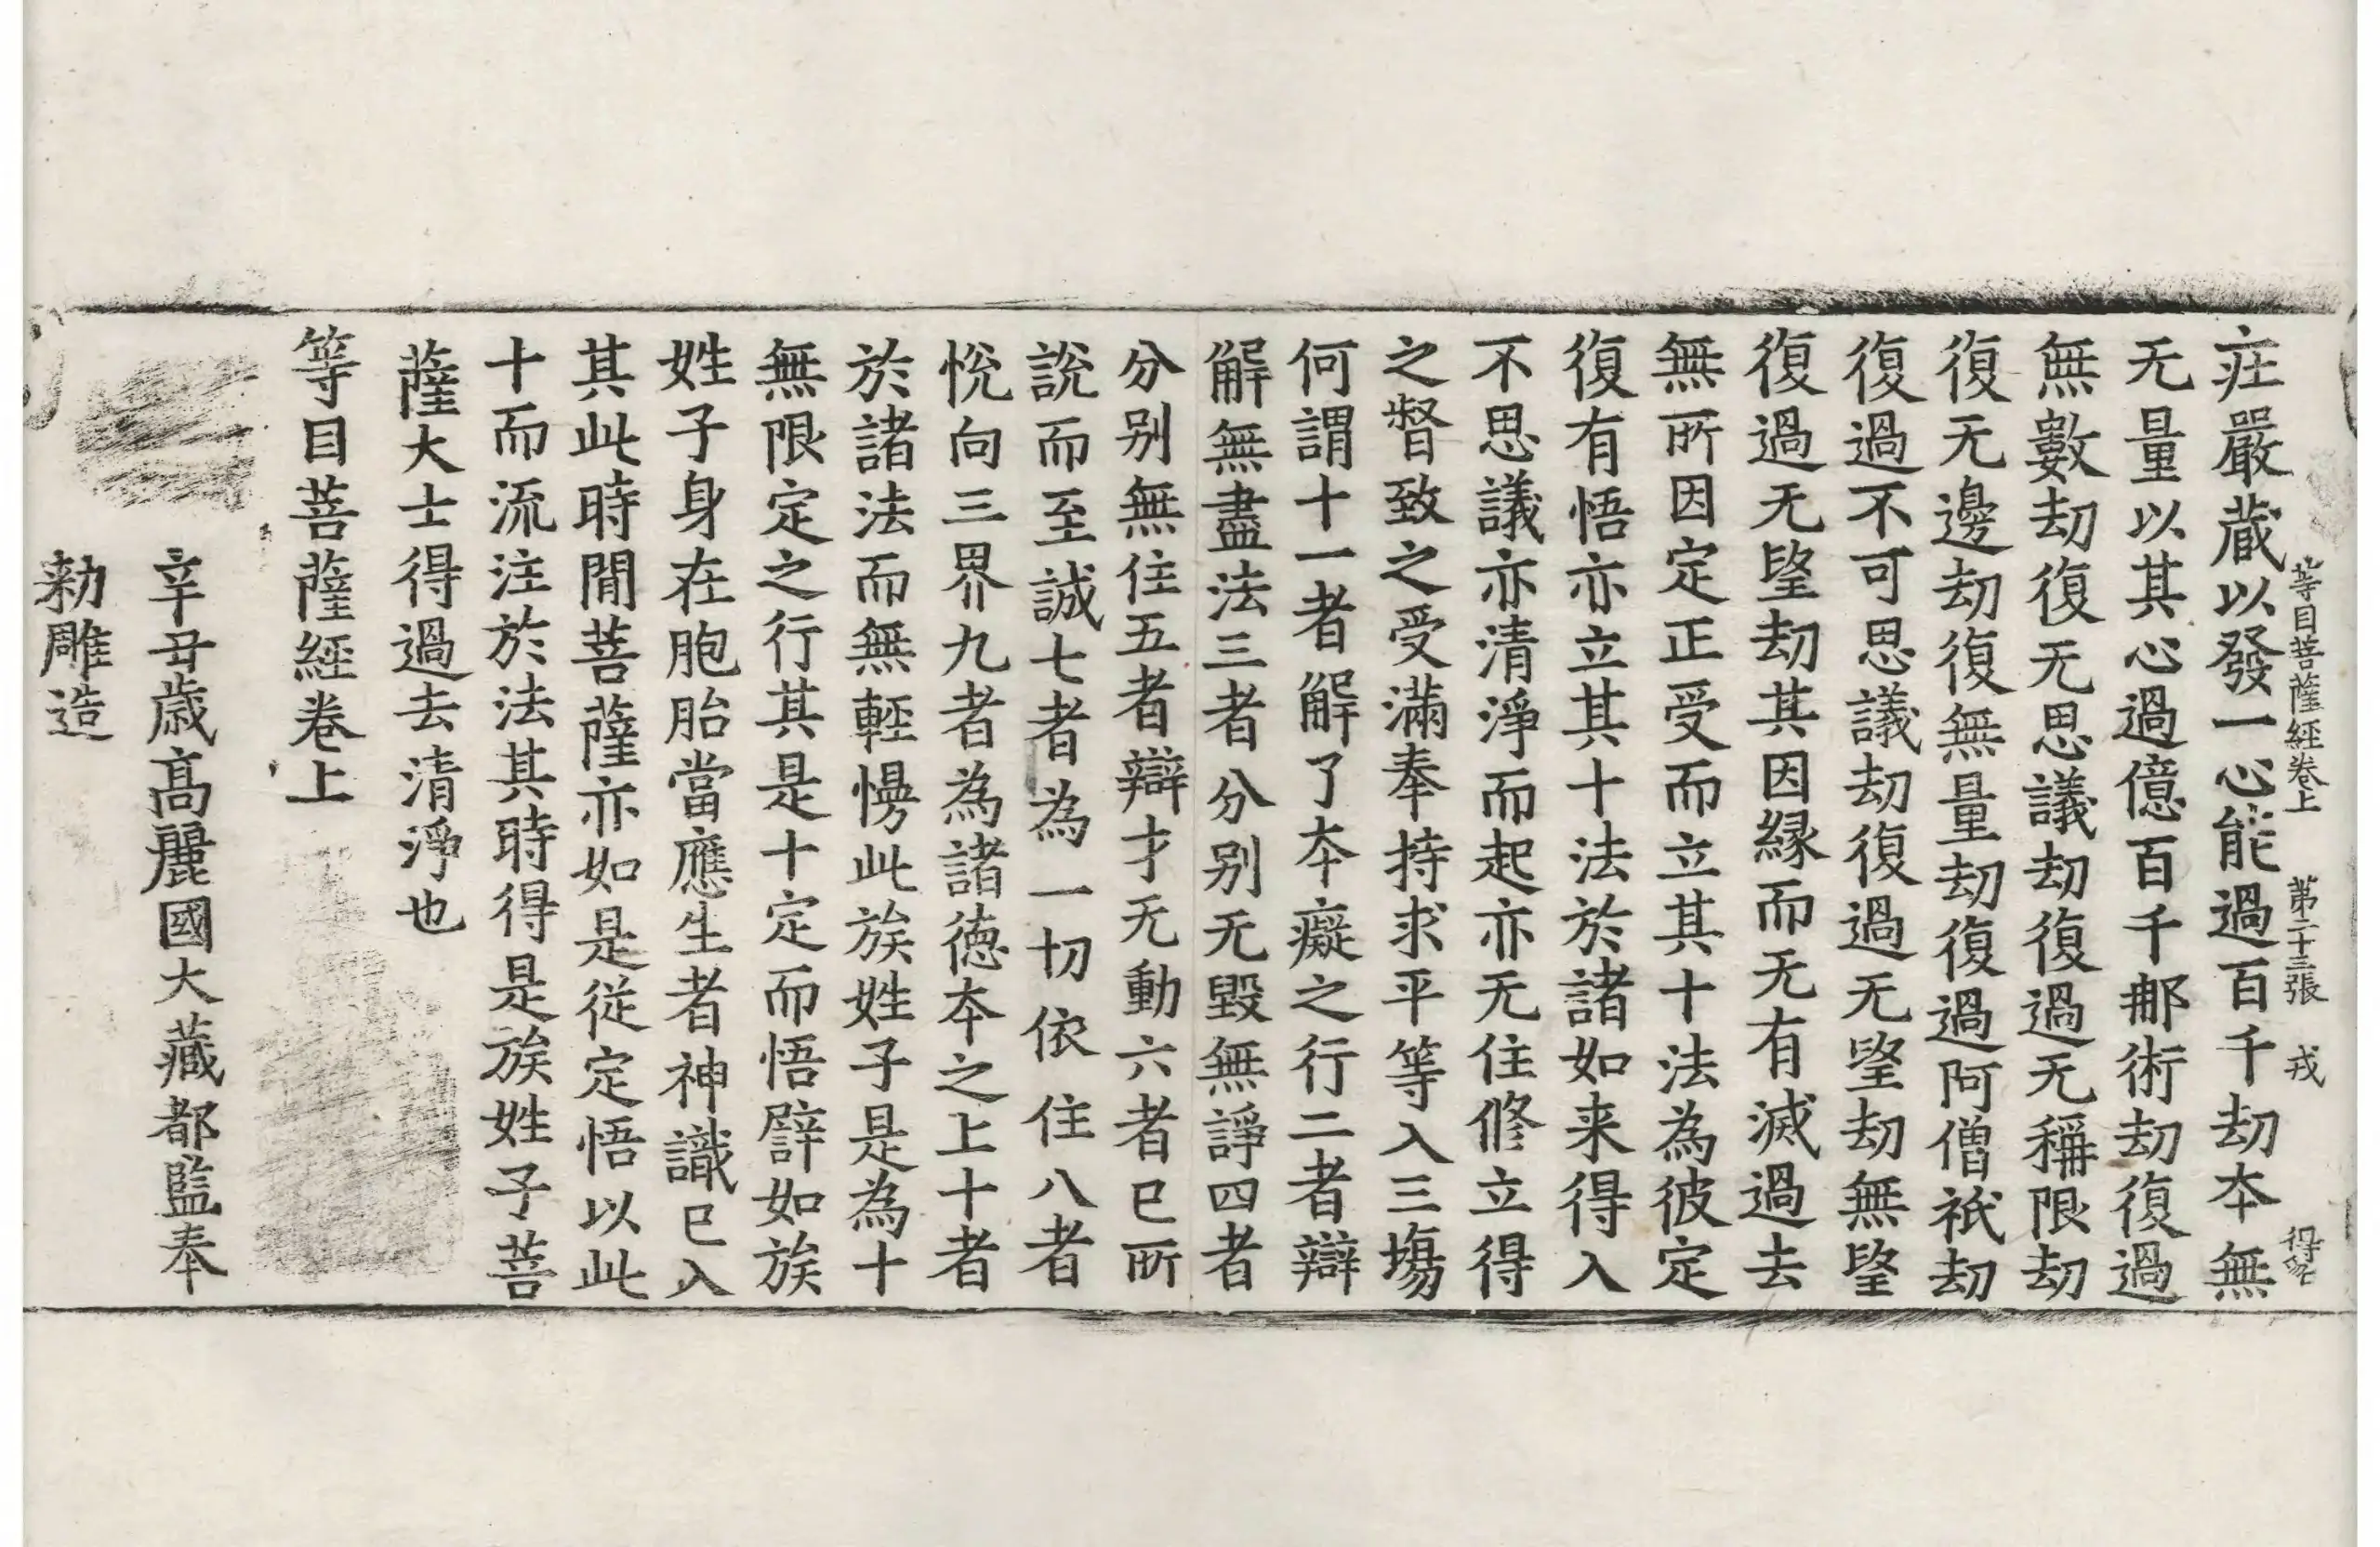 等目菩薩經卷上 第二十三張 戎
疰嚴蔵以發一心能過百千劫本無
无量以其心過億百千那術劫復過
無數劫復无思議劫復過无稱限劫
復无邊劫復無量劫復過阿僧祇劫
復過不可思議劫復過无朢劫無朢
復過无朢劫其因縁而无有滅過去
無所因定正受而立其十法為彼定
復有悟亦立其十法於諸如来得入
不思議亦清淨而起亦无住修立得
之督致之受滿奉持求平等入三塲
何謂十一者解了本癡之行二者辯
解無盡法三者分別无毀無諍四者
分別無住五者辯才无動六者已所
說而至誠七者為一切依住八者
悅向三界九者為諸徳本之上十者
於諸法而無輕慢此族姓子是為十
無限定之行其是十定而悟辟如族
姓子身在胞胎當應生者神識已入
其此時閒菩薩亦如是従定悟以此
十而流注於法其時得是族姓子菩
薩大士得過去清淨也
等目菩薩經卷上
辛丑歳高麗國大藏都監奉
勅雕造